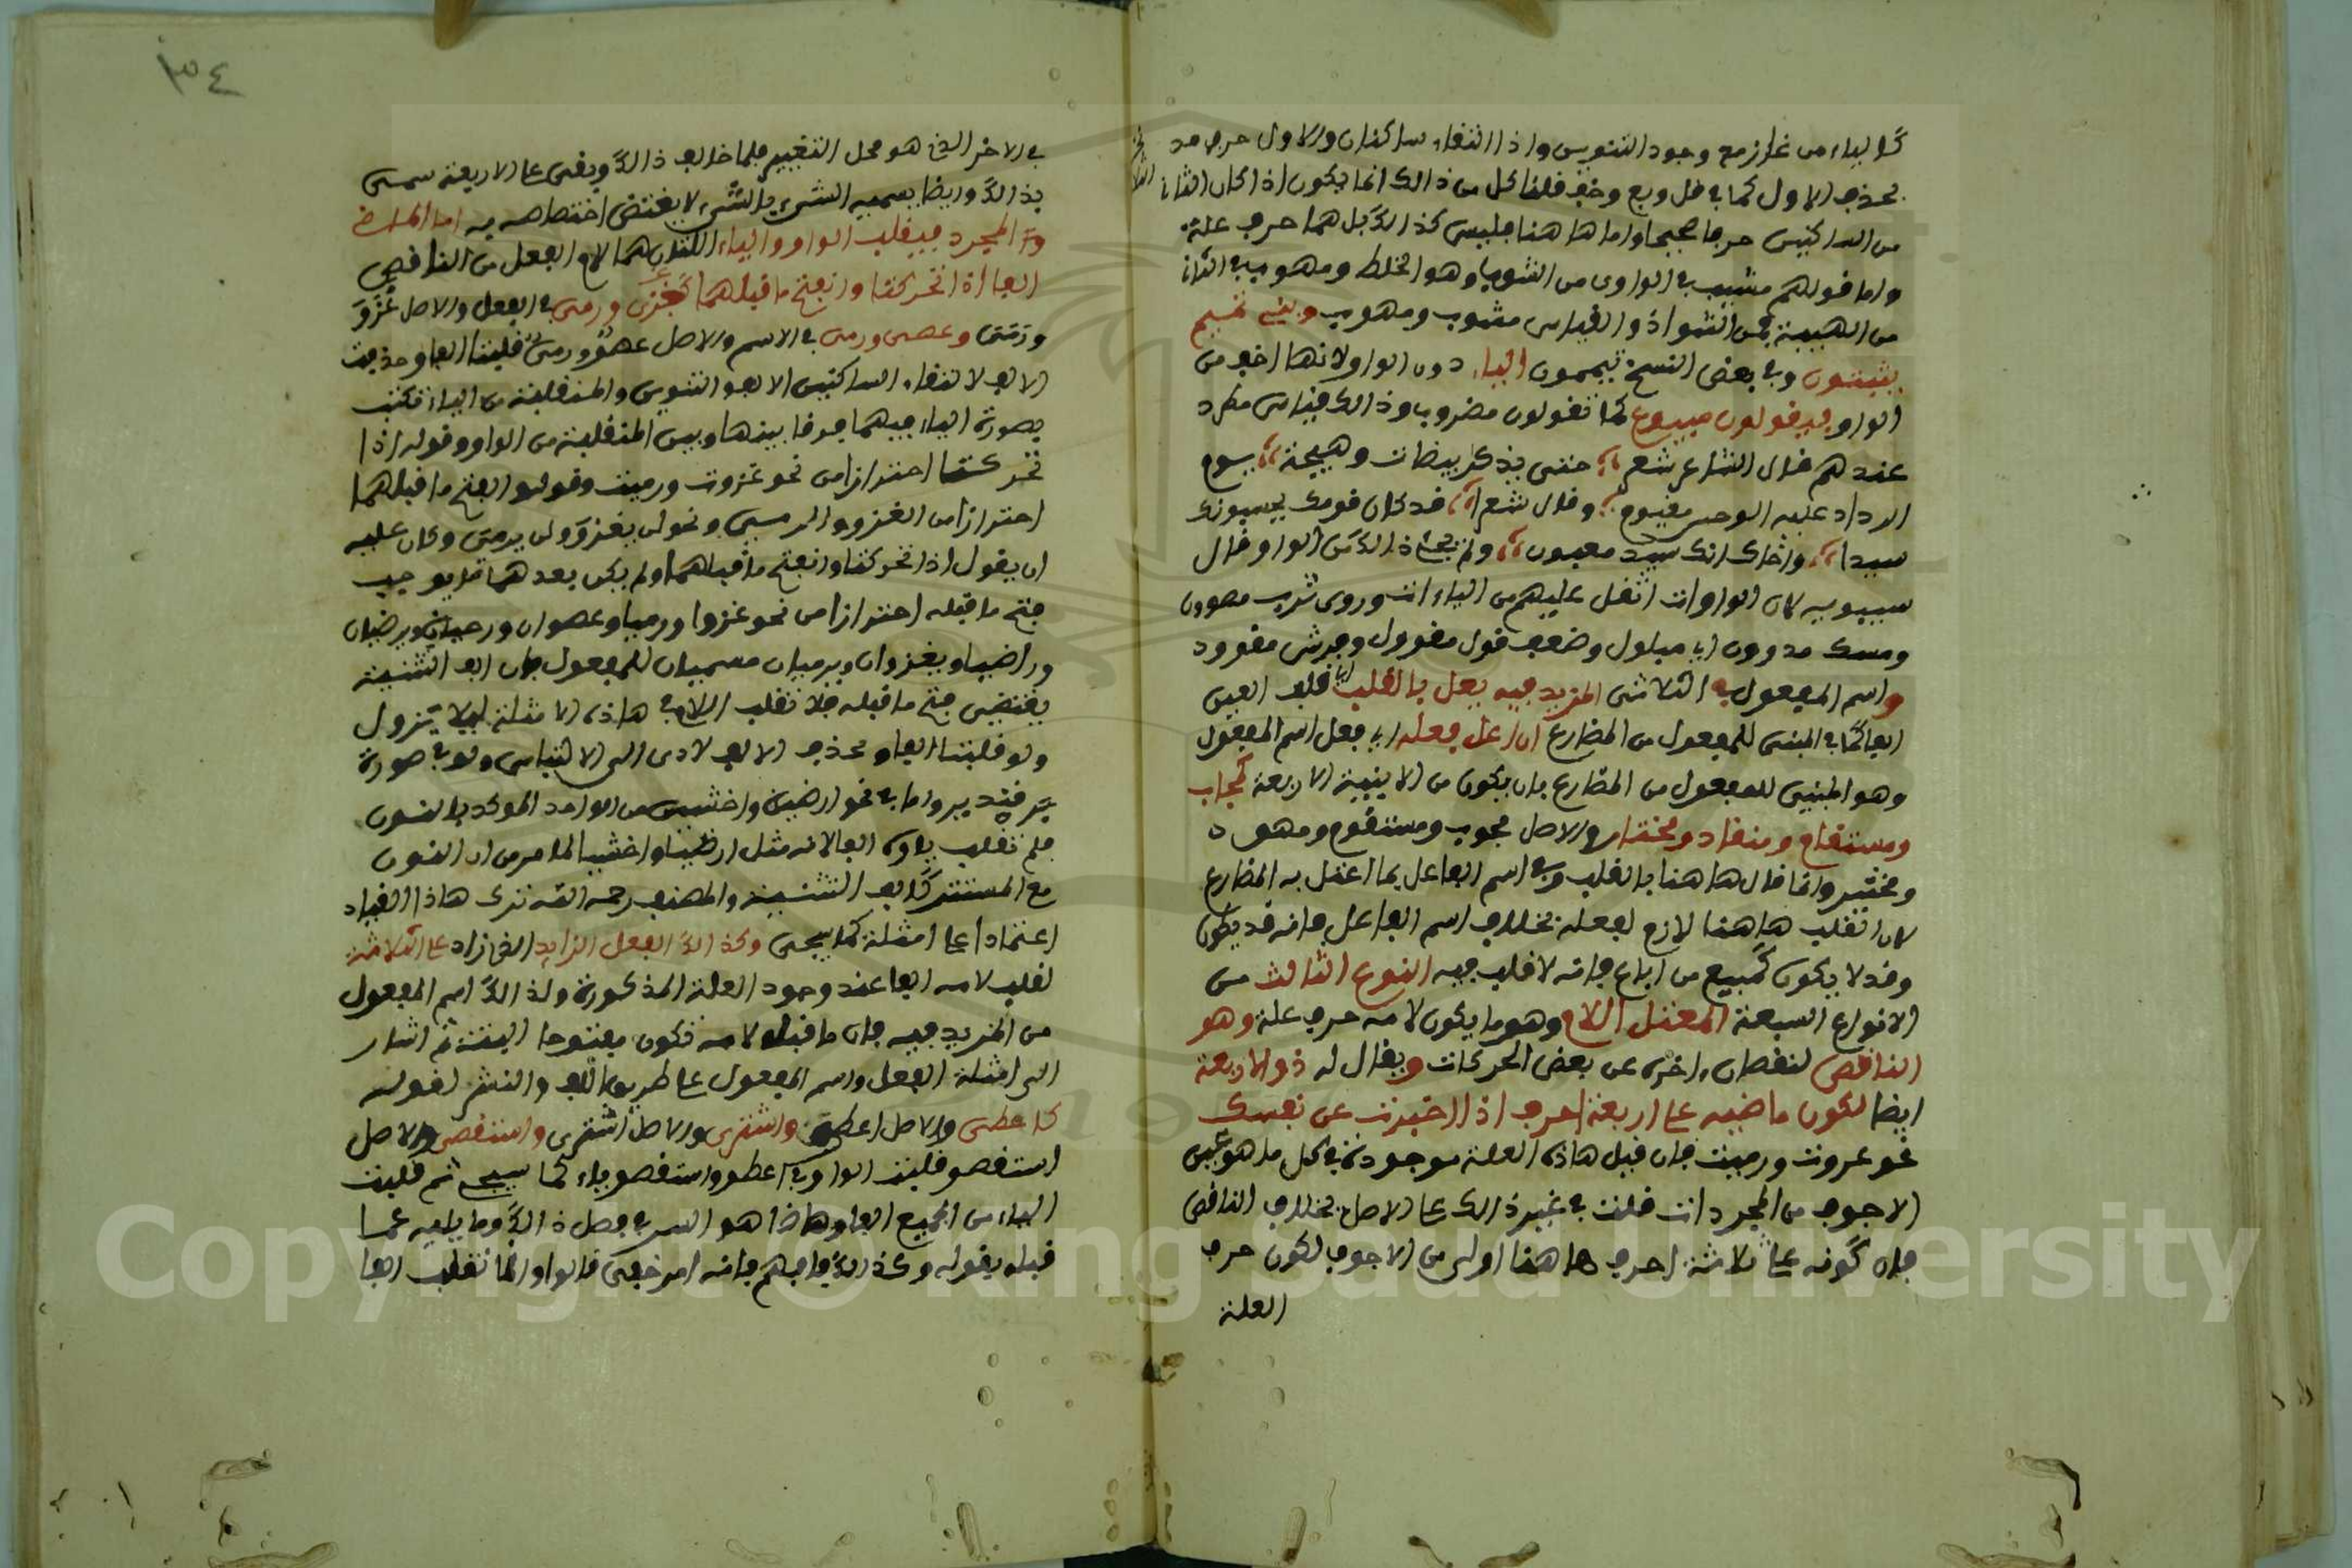 كالياء من غاز مع وجود التنوين واذا التقاء ساكنان والاول حرف مد
يحذف الاول كما في قل وبع وخف قلنا كل من ذالك انما يكون اذا كان الثاني
من الساكنين حرفا صحيحا واما هاهنا فليس كذالك بل هما حرف علة
واما قولهم مشيب في الواوى من الشوب وهو الخلط ومهوب في الثاني
من الهيبة فمن الشواذ والقياس مشوب ومهيب وبنى تميم
يثبتون وفي بعض النسخ يتممون الياء دون الواو لانها اخف من
الواو فيقولون مبيوع كما تقولون مضروب وذالك قياس مطرد
عندهم قال الشاعر شعر حتى يذكر بيضات وهيجه يوم
الرذاذ عليه الدجن مغيوم وقال شعرا قد كان قومك يحسبونك
سيدا واخال انك سيد معيون ولم يجئ ذالك من الواو قال
سيبويه لان الواوات اثقل عليهم من الياءات وروى ثوب مصوون
ومسك مدووف اى مبلول وضعف قول مقوول وفرس مقوود
واسم المفعول من الثلاثى المزيد فيه يعل بالقلب اى قلب العين
الفا كما في المبنى للمفعول من المضارع ان اعل فعله اى فعل اسم المفعول
وهو المبنى للمفعول من المضارع بان يكون من الابنية الاربعة كمجاب
ومستقام ومنقاد ومختار والاصل مجوب ومستقوم ومنقود
ومختير وانما قال هاهنا بالقلب وفي اسم الفاعل بما اعتل به المضارع
لان القلب هاهنا لازم لفعله بخلاف اسم الفاعل فانه قد يكون
وقد لا يكون كمبيع من اباع فانه لا قلب فيه النوع الثالث من
الانواع السبعة المعتل اللام وهو ما يكون لامه حرف علة وهو
الناقص لنقصان اخره عن بعض الحركات ويقال له ذو الاربعة
ايضا لكون ماضيه على اربعة احرف اذا اخبرت عن نفسك
نحو غزوت ورميت فان قيل هاذه العلة موجودة في كل ما هو غير
الاجوف من المجردات قلت في غير ذالك على الاصل بخلاف الناقص
فان كونه على ثلاثة احرف هاهنا اولى من الاجوف لكون حرف
العلة
٣٤
في الاخر الذي هو محل التغيير فلما خالف ذالك وبقى على الاربعة سمى
بذالك وايضا تسمية الشيء بالشيء لا يقتضى اختصاصه به اما الماضى
المجرد فيقلب الواو والياء اللتان هما لام الفعل من الناقص
الفا اذا تحركتا وانفتح ما قبلهما كغزى ورمى في الفعل والاصل غزو
ورمى وعصى ورمى في الاسم والاصل عصو ورمى قلبتا الفا وحذفت
الالف لالتقاء الساكنين الالف والتنوين والمنقلبة من الياء تكتب
بصورة الياء فيهما فرقا بينها وبين المنقلبة من الواو وقوله اذا
تحركتا احترازا من نحو غزوت ورميت وقوله انفتح ما قبلهما
احترازا من الغزو والرمي ونحو لن يغزو ولن يرمى وكان عليه
ان يقول اذا تحركتا وانفتح ما قبلهما ولم يكن بعدهما ما يوجب
فتح ما قبله احترازا من نحو غزوا ورميا وعصوان ورحيان ويرضيان
وراضيا ويغزوان ويرميان مسميان للمفعول فان الف التثنية
يقتضى فتح ما قبله فلا تقلب اللام في هاذه الامثلة ليلا يزول
ولو قلبتا الفا وتحذف الالف لادى الى الالتباس ولو في صورة
فتدبر واما في نحو ارضين واخشين من الواحد الموكد بالنون
فلم تقلب ياؤه الفا لانه مثل ارضيا واخشيا لما مر من ان النون
مع المستتر كالف التثنية والمصنف رحمه الله ترك هاذا القيد
اعتمادا على امثلة كما سيجى وكذالك الفعل الزايد الذي زاد على الثلاثة
لقلب لامه الفا عند وجود العلة المذكورة ولذالك اسم المفعول
من المزيد فيه فان ما قبل لامه تكون مفتوحا البتة ثم اشار
الى امثلة الفعل واسم المفعول على طريق اللف والنشر لقوله
كاعطى والاصل اعطو واشترى والاصل اشترى واستقصى والاصل
استقصو قلبت الواو في اعطو واستقصو ياء كما سيجئ ثم قلبت
الياء من الجميع الفا وهاذا هو السر في فصل ذالك وما يليه عما
قبله بقوله وكذالك فافهم فانه امر خفى فالواو انما تقلب الفا